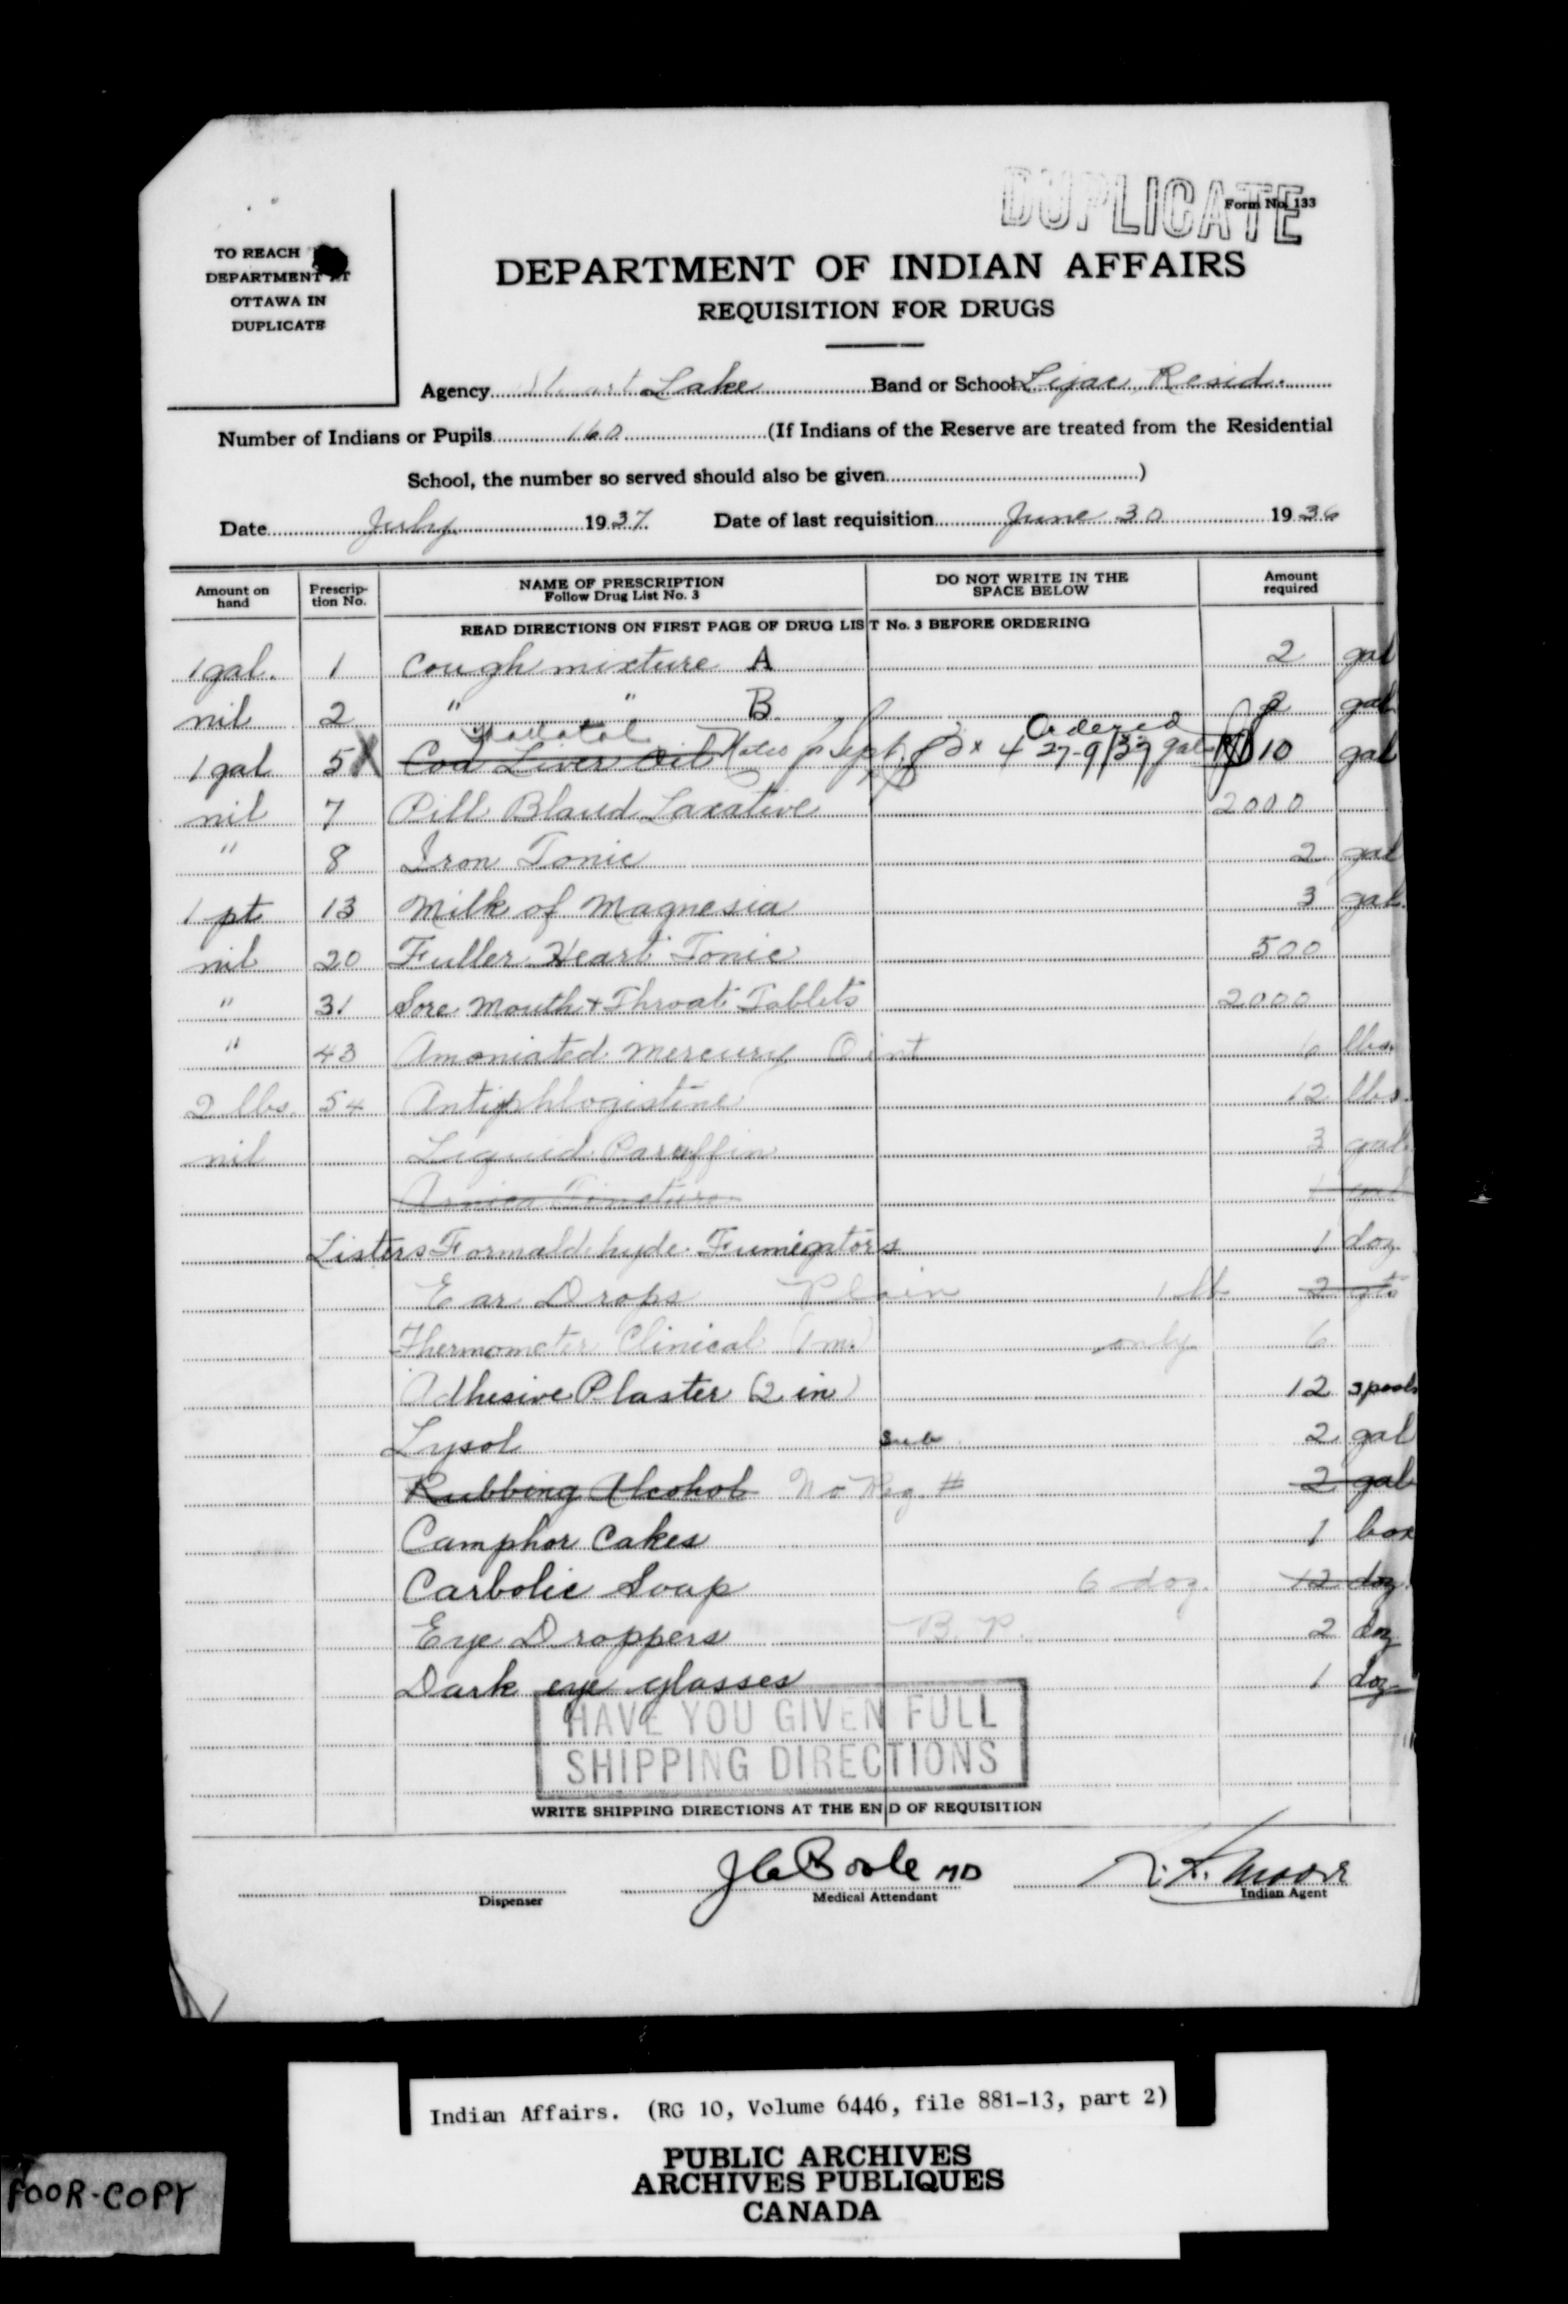 DUPLICATE
Form No. 133
TO REACH
DEPARTMENT AT
OTTAWA IN
DUPLICATE
DEPARTMENT OF INDIAN AFFAIRS
REQUISITION FOR DRUGS
Agency Stuart Lake Band or School Lejac Resid.
Number of Indians or Pupils 160 (If Indians of the Reserve are treated from the Residential
School, the number so served should also be given )
Date July 1937 Date of last requisition June 30 1936
Amount on hand Prescrip-tion No. NAME OF PRESCRIPTION Follow Drug List No. 3 DO NOT WRITE IN THE SPACE BELOW Amount required
READ DIRECTIONS ON FIRST PAGE OF DRUG LIST No. 3 BEFORE ORDERING
1 gal. 1 Cough mixture A 2 gal
nil 2 " " B 2 gal
Ordered
1 gal 5 X Cod Liver Oil 4 27-9/37 gal 10 gal
nil 7 Pill Blaud Laxative 2000
" 8 Iron Tonic 2 gal
1 pt 13 Milk of Magnesia 3 gal.
nil 20 Fuller Heart Tonic 500
" 31 Sore Mouth + Throat Tablets 2000
" 43 Amoniated Mercury Oint lbs.
2 lbs. 54 Antiphlogistine 12 lbs.
nil Liquid Paraffin 3 gal.
Arnica Tincture 1
Listers Formaldehyde Fumigators 1 doz.
Ear Drops Plain 1 lb 2 qts
Thermometer Clinical (1 m.) only 6
Adhesive Plaster (2 in) 12 spools
Lysol sub 2 gal
Rubbing Alcohol No Reg. # 2 gal
Camphor Cakes 1 box
Carbolic Soap 6 doz. 12 doz.
Eye Droppers B.P. 2 doz
Dark eye glasses 1 doz
HAVE YOU GIVEN FULL
SHIPPING DIRECTIONS
WRITE SHIPPING DIRECTIONS AT THE END OF REQUISITION
MD Moore
Dispenser Medical Attendant Indian Agent
Indian Affairs. (RG 10, Volume 6446, file 881-13, part 2)
PUBLIC ARCHIVES
ARCHIVES PUBLIQUES
CANADA
POOR-COPY